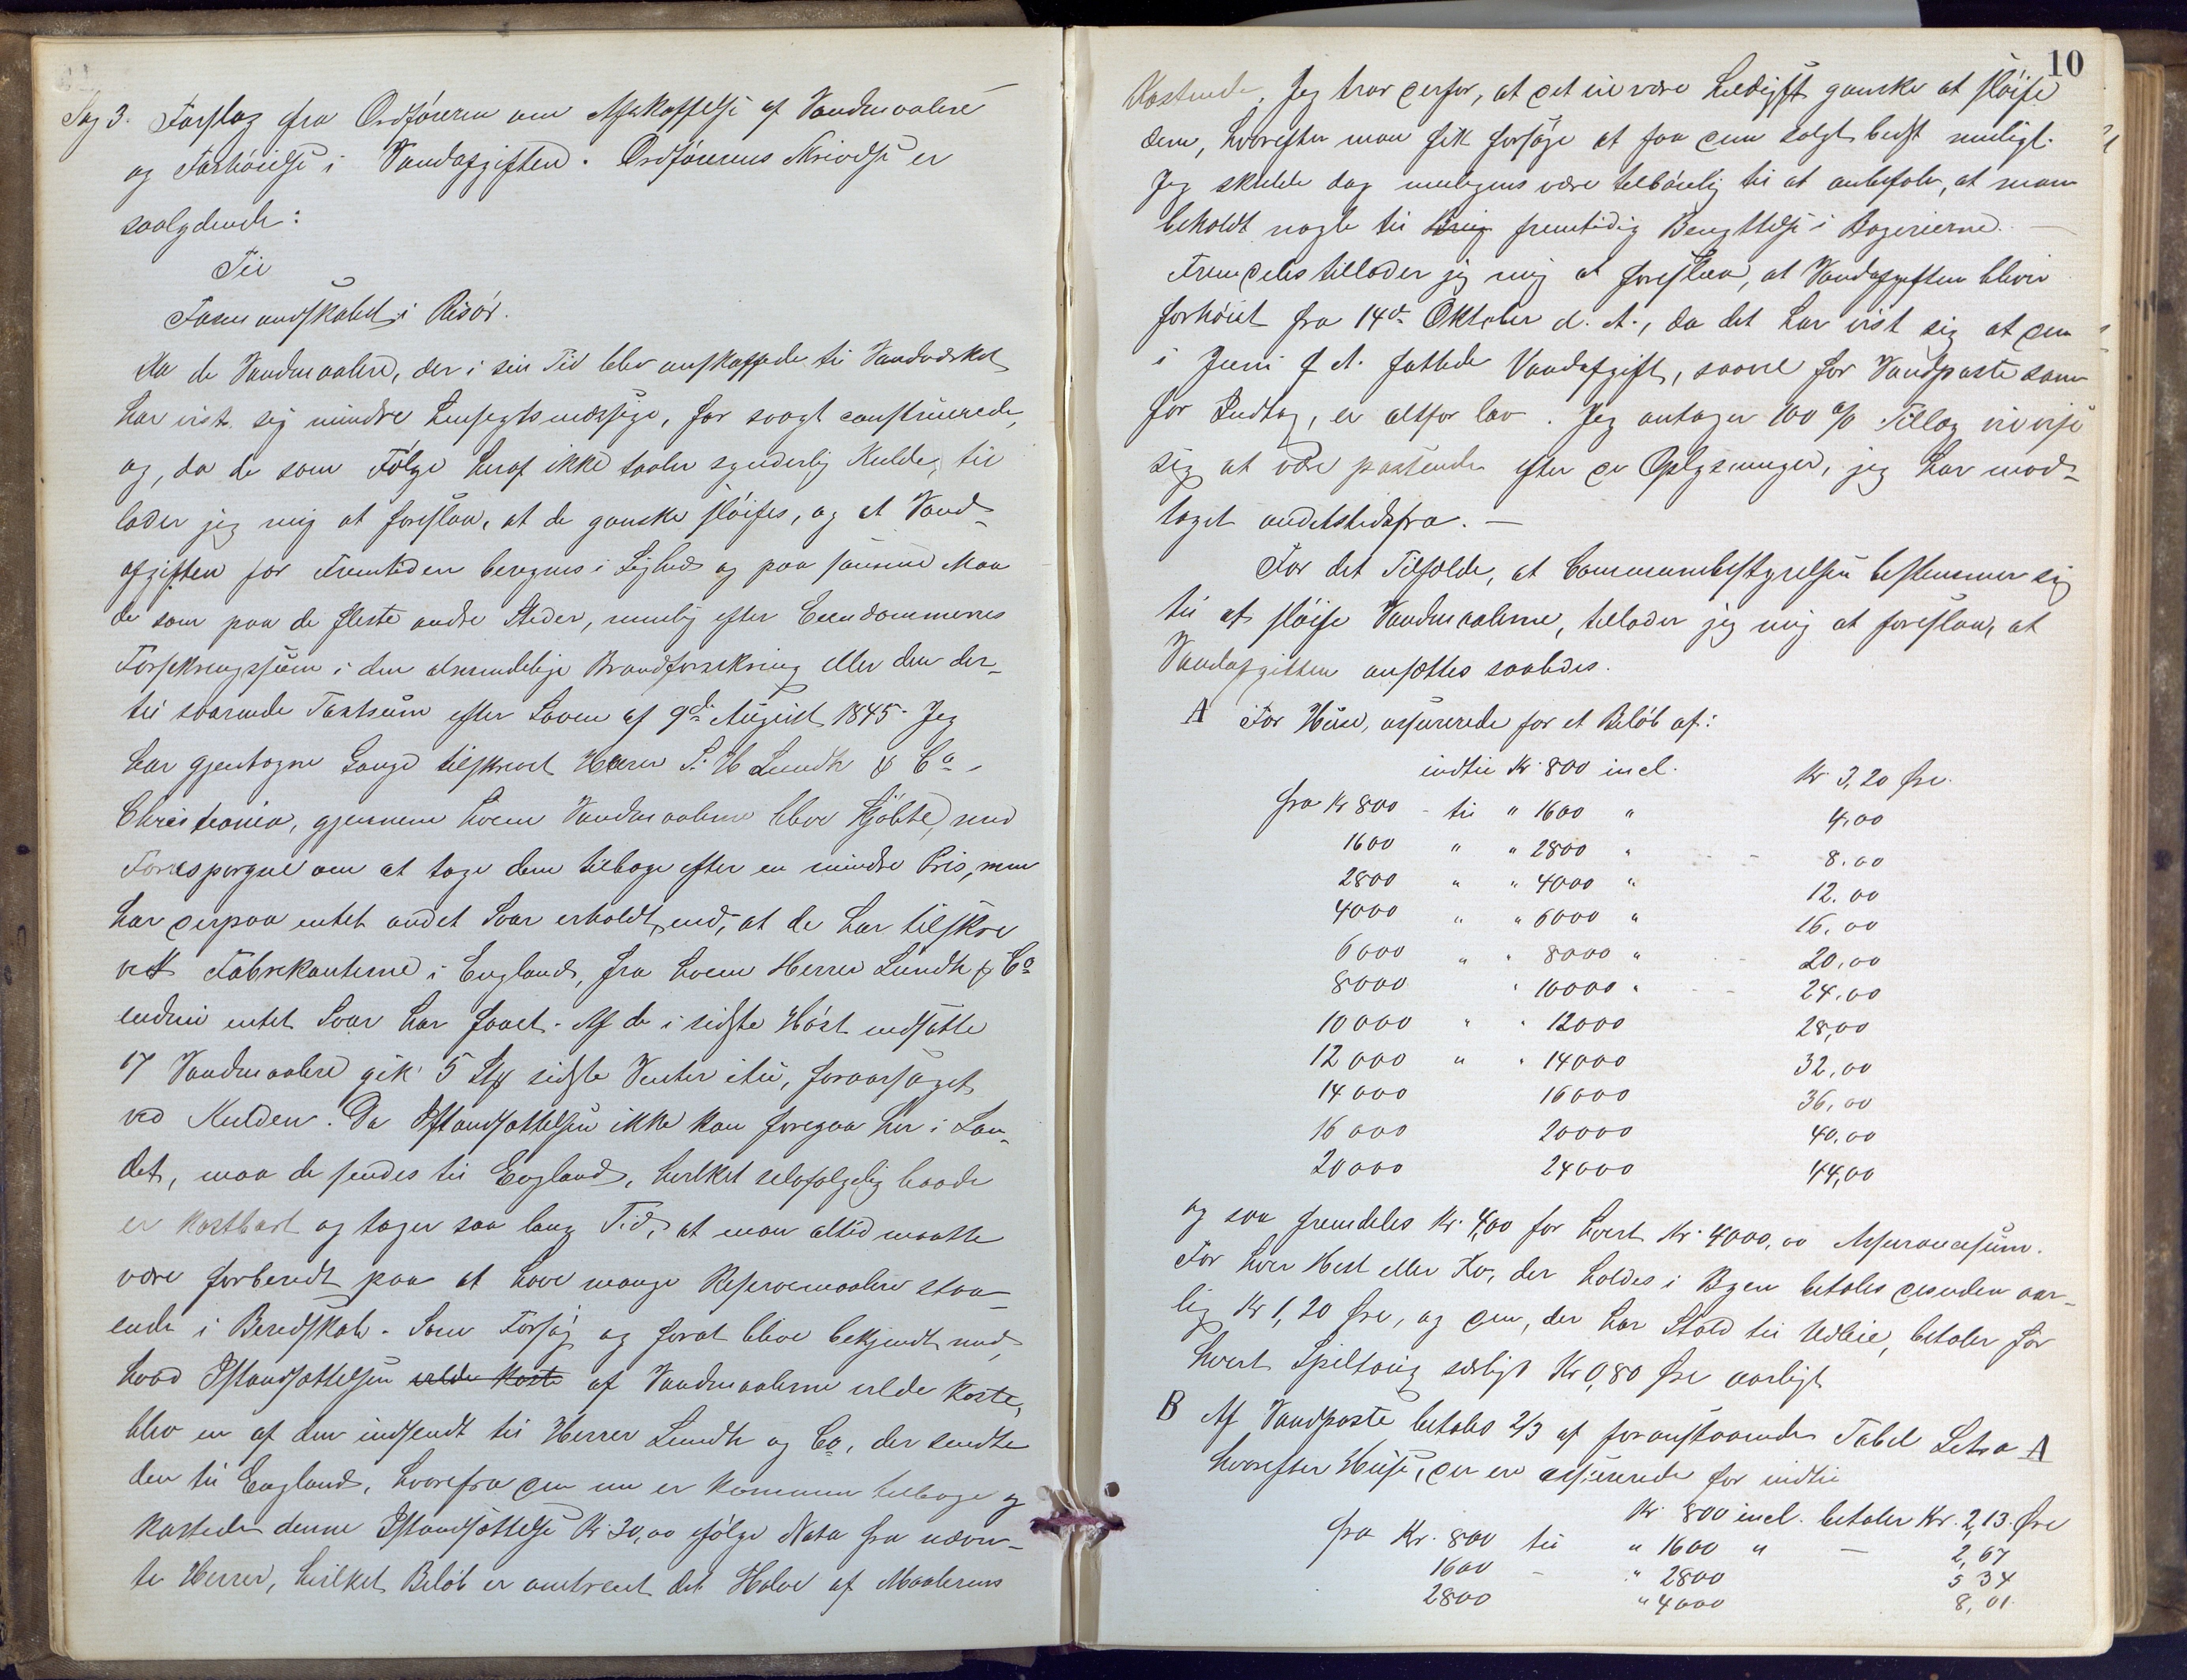 Sag 3. Forslag fra Ordføreren om Afskaffelse af Vandmaalere
og Forhøielse i Vandafgiften. Ordførerens Skrivelse er
saalydende:
Til
Formandskabet i Risør.
Da de Vandmaalere, der i sin Tid blev anskaffede til Vandværket
har vist sig mindre hensigtsmæssige, for svagt construerede,
og, da de som Følge heraf ikke taaler synderlig Kulde, til
lader jeg mig at foreslaa, at de ganske sløifes, og at Vand-
afgiften for Fremtiden beregnes i Lighed og paa samme Maa
de som paa de fleste andre Steder, nemlig efter Eiendommenes
Forsikringssum i den almindelige Brandforsikring eller den der-
til svarende Taxtsum efter Loven af 9de August 1845. Jeg
har gjentagne Gange tilskrevet Herrer S. H Lundh & Co.
Christiania, gjennem hvem Vandmaalerne blev kjøbte, med
Forespørgsel om at tage dem tilbage efter en mindre Pris, men
har derpaa intet andet Svar erholdt, end, at de har tilskre
vet Fabrikanterne i England, fra hvem Herrer Lundh & Co
endnu intet Svar har faaet. Af de i sidste Høst nedsatte
17 Vandmaalere gik 5 Stk sidste Vinter itu, foraarsaget
ved Kulden. Da Istandsættelsen ikke kan foregaa her i Lan-
det, maa de sendes til England, hvilket selvfølgelig baade
er kostbart og tager saa lang Tid, at man altid maatte
være forberedt paa at have mange Reservemaalere staa-
ende i Beredskab. Som Forsøg og forat blive bekjendt med,
hvad Istandsættelsen vilde koste af Vandmaalerne vilde koste,
blev en af dem indsendt til Herrer Lundh og Co, der sendte
den til England, hvorfra den nu er kommen tilbage og
kostede denne Istandsættelse Kr. 20,00 ifølge Nota fra nævn-
te Herrer, hvilket Beløb er omtrent det Halve af Maalerens
10
Kostende. Jeg tror derfor, at det vil være heldigst ganske at sløife
dem, hvorefter man fik forsøge at faa dem solgt bedst muligt.
Jeg skulde dog muligens være tilbøielig til at anbefale, at man
beholdt nogle til Brug fremtidig Benyttelse i Bagerierne. —
Fremdeles tillader jeg mig at foreslaa, at Vandafgiften bliver
forhøiet fra 14de Oktober d. A., da det har vist sig at den
i Juni f. A. fattede Vandafgift, saavel for Vandposte som
for Indtag, er altfor lav. Jeg antager 100 % Tillæg vil vise
sig at være passende efter de Oplysninger, jeg har mod-
taget andetstedsfra. —
For det Tilfælde, at Communebestyrelsen bestemmer sig
til at sløife Vandmaalerne, tillader jeg mig at foreslaa, at
Vandafgiften ansættes saaledes.
A For Huse, assurerede for et Beløb af:
indtil Kr. 800 incl. Kr 3,20 Øre.
fra Kr 800 - til " 1600 " 4,00
1600 " " 2800 " 8.00
2800 " " 4000 " 12.00
4000 " " 6000 " 16,00
6000 " " 8000 " 20,00
8000 " 10000 " 24,00
10000 " " 12000 28,00
12000 " " 14000 32,00
14000 16000 36,00
16000 20000 40,00
20000 24000 44,00
og saa fremdeles Kr. 4,00 for hvert Kr. 4000,00 Assurancesum.
For hver Hest eller Ko, der holdes i Byen betales desuden aar-
lig Kr 1,20 Øre, og den, der har Stald til Udleie, betaler for
hvert Spiltoug særligt Kr 0,80 Øre aarligt
B Af Vandposte betales 2/3 af foranstaaende Tabel Letra A
hvorefter Huse, der ere assurerede for indtil
Kr. 800 incl. betaler Kr. 2,13. Øre
fra Kr. 800 til " 1600 " — 2,67
1600 - " 2800 5 34
2800 " 4000 8,01.